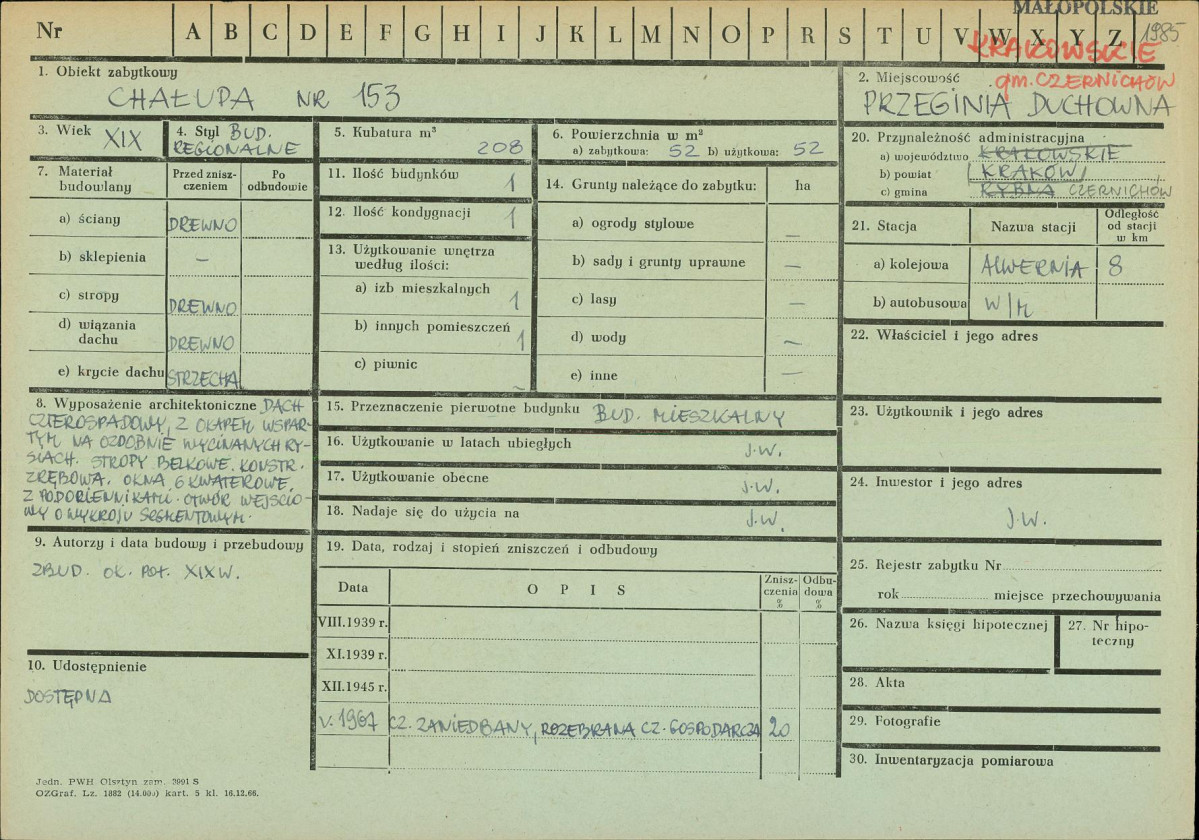 MAŁOPOLSKIE
Nr A B C D E F G H I J K L M N O P R S T U V W X Y Z 1985
KRAKOWSKIE
gm. CZERNICHÓW
1. Obiekt zabytkowy
CHAŁUPA NR 153
2. Miejscowość
PRZEGINIA DUCHOWNA
3. Wiek XIX
4. Styl BUD.
REGIONALNE
5. Kubatura m³
208
6. Powierzchnia w m²
a) zabytkowa: 52 b) użytkowa: 52
7. Materiał budowlany
Przed zniszczeniem
Po odbudowie
a) ściany DREWNO
b) sklepienia –
c) stropy DREWNO
d) wiązania dachu DREWNO
e) krycie dachu STRZECHA
11. Ilość budynków 1
12. Ilość kondygnacji 1
13. Użytkowanie wnętrza
według ilości:
a) izb mieszkalnych 1
b) innych pomieszczeń 1
c) piwnic –
14. Grunty należące do zabytku: ha
a) ogrody stylowe –
b) sady i grunty uprawne –
c) lasy –
d) wody –
e) inne –
20. Przynależność administracyjna
a) województwo KRAKOWSKIE
b) powiat KRAKÓW
c) gmina RYBNA CZERNICHÓW
21. Stacja Nazwa stacji Odległość od stacji w km
a) kolejowa ALWERNIA 8
b) autobusowa W/M
22. Właściciel i jego adres
8. Wyposażenie architektoniczne DACH
CZTEROSPADOWY, Z OKAPEM WSPAR-
TYM NA OZDOBNIE WYCINANYCH RY-
SIACH. STROPY BELKOWE. KONSTR.
ZRĘBOWA. OKNA 6 KWATEROWE,
Z PODOKIENNIKAMI. OTWÓR WEJŚCIO-
WY O WYKROJU SEGMENTOWYM.
9. Autorzy i data budowy i przebudowy
ZBUD. OK. POŁ. XIX W.
10. Udostępnienie
DOSTĘPNA
15. Przeznaczenie pierwotne budynku BUD. MIESZKALNY
16. Użytkowanie w latach ubiegłych J.W.
17. Użytkowanie obecne J.W.
18. Nadaje się do użycia na J.W.
19. Data, rodzaj i stopień zniszczeń i odbudowy
Data O P I S Zniszczenia % Odbudowa %
VIII.1939 r.
XI.1939 r.
XII.1945 r.
V. 1967 CZ. ZANIEDBANY, ROZEBRANA CZ. GOSPODARCZA 20
23. Użytkownik i jego adres
24. Inwestor i jego adres
J.W.
25. Rejestr zabytku Nr
rok miejsce przechowywania
26. Nazwa księgi hipotecznej
27. Nr hipo-
teczny
28. Akta
29. Fotografie
30. Inwentaryzacja pomiarowa
Jedn. PWH Olsztyn zam. 3991 S
OZGraf. Lz. 1882 (14.000) kart. 5 kl. 16.12.66.